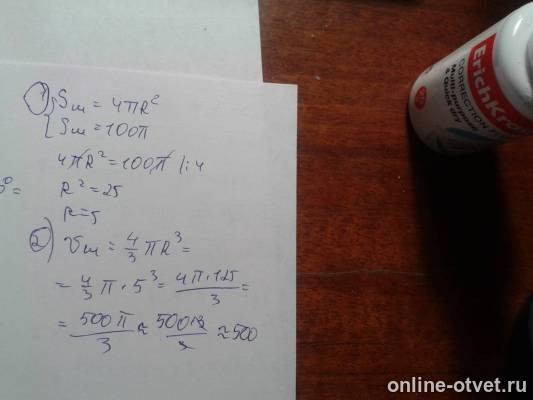 1) Sш = 4πR²
Sш = 100π
4πR² = 100π /:4
R² = 25
R = 5
2) Vш = 4/3 πR³ =
= 4/3 π · 5³ = 4π·125/3 =
= 500π/3 ≈ 500·3/3 ≈ 500
ErichKra
CORRECTION
Multi-purpose
& Quick dry
online-otvet.ru